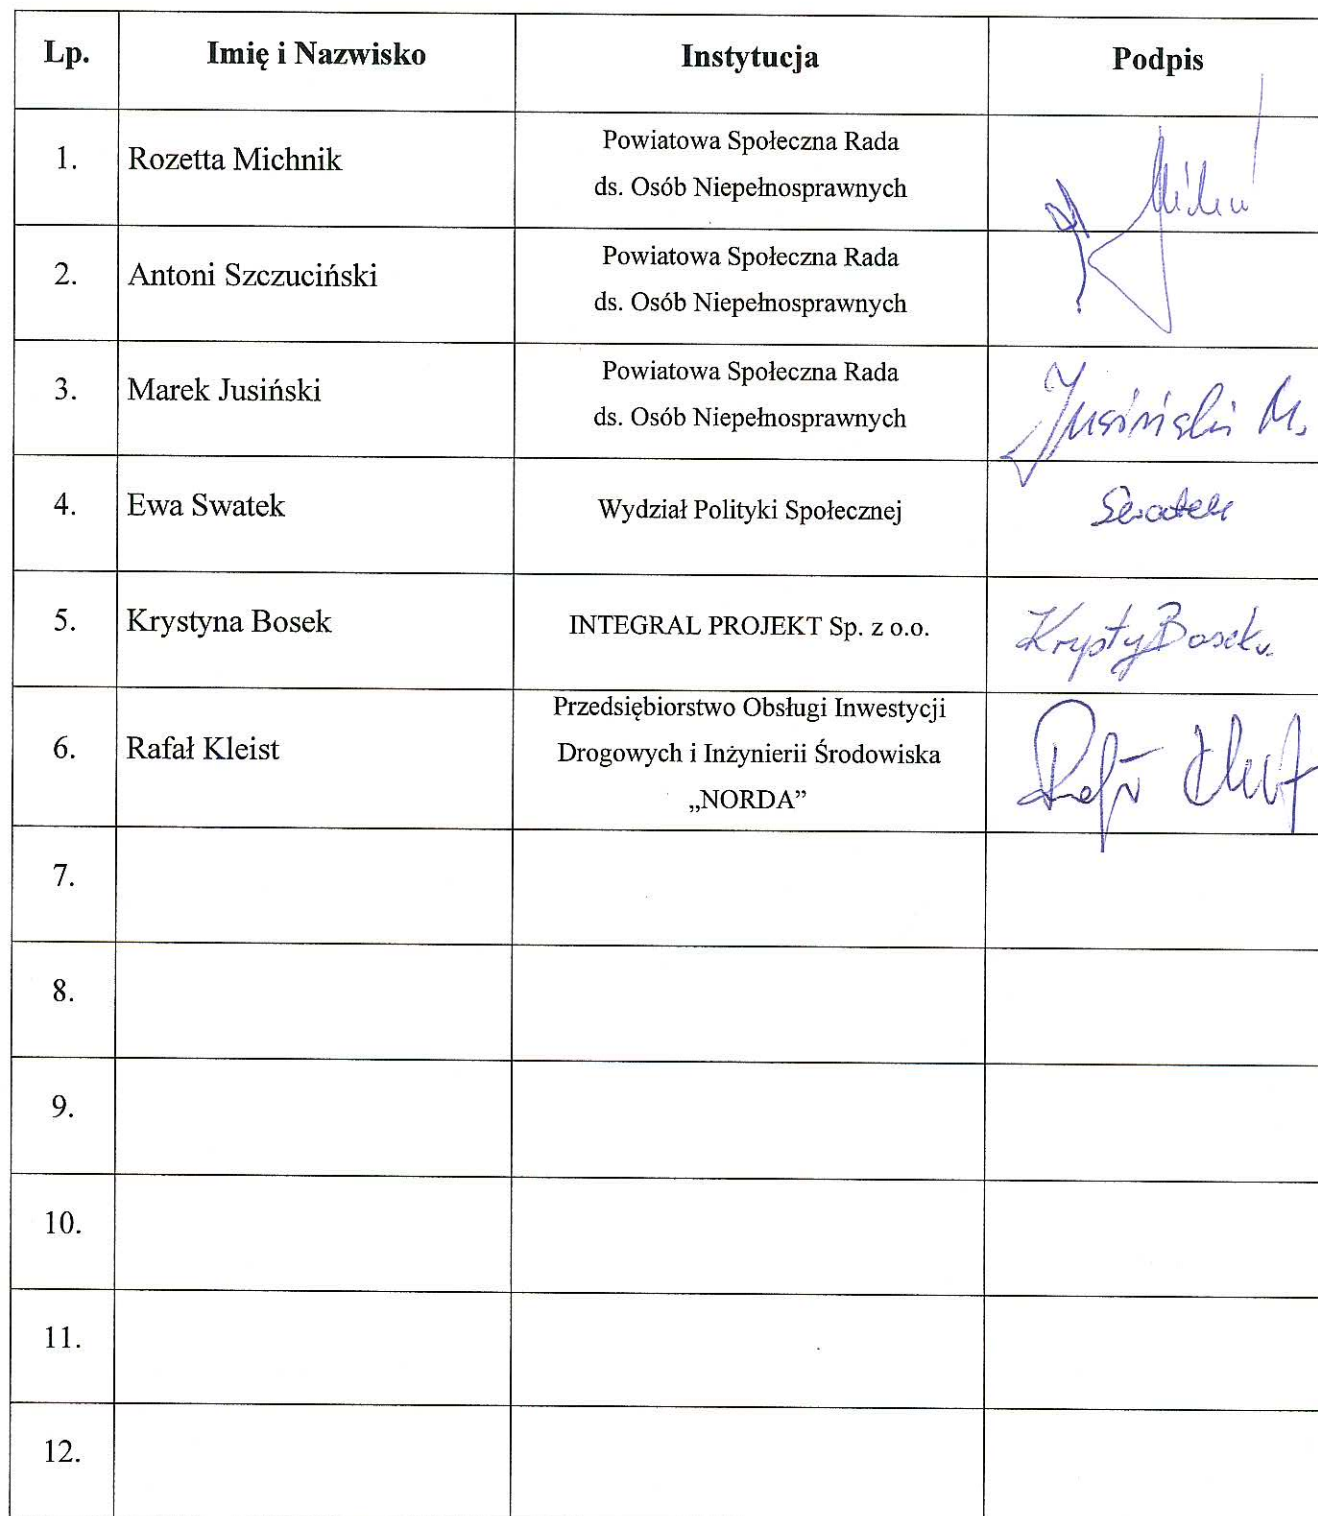 Lp. Imię i Nazwisko Instytucja Podpis
1. Rozetta Michnik Powiatowa Społeczna Rada
ds. Osób Niepełnosprawnych
2. Antoni Szczuciński Powiatowa Społeczna Rada
ds. Osób Niepełnosprawnych
3. Marek Jusiński Powiatowa Społeczna Rada
ds. Osób Niepełnosprawnych
Jusiński M.
4. Ewa Swatek Wydział Polityki Społecznej Swatek
5. Krystyna Bosek INTEGRAL PROJEKT Sp. z o.o. Krysty Bosek
6. Rafał Kleist Przedsiębiorstwo Obsługi Inwestycji
Drogowych i Inżynierii Środowiska
„NORDA”
7.
8.
9.
10.
11.
12.